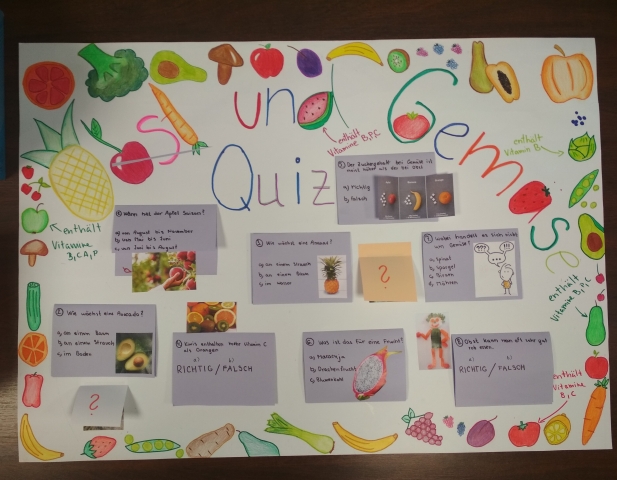 und Gemüse
Quiz
enthält
Vitamine B,C
enthält
Vitamin B
enthält
Vitamine
B,C,A,P
enthält
Vitamine B,P,C
enthält
Vitamine
B, C
Der Zuckergehalt bei Gemüse ist
meist höher als der bei Obst
a) richtig
b) falsch
Wann hat der Apfel Saison?
a) von August bis November
b) von Mai bis Juni
c) von Juni bis August
Wie wächst eine Ananas?
a) an einem Strauch
b) an einem Baum
c) im Boden
?
Wobei handelt es sich nicht
um Gemüse?
a) Spinat
b) Spargel
c) Birnen
d) Möhren
??? !!!
Wie wächst eine Avocado?
a) an einem Baum
b) an einem Strauch
c) im Boden
Kiwis enthalten mehr Vitamin C
als Orangen
a) b)
RICHTIG / FALSCH
Was ist das für eine Frucht?
a) Maracuja
b) Drachenfrucht
c) Blumenkohl
Obst kann man oft sehr gut
roh essen.
a) b)
RICHTIG / FALSCH
?